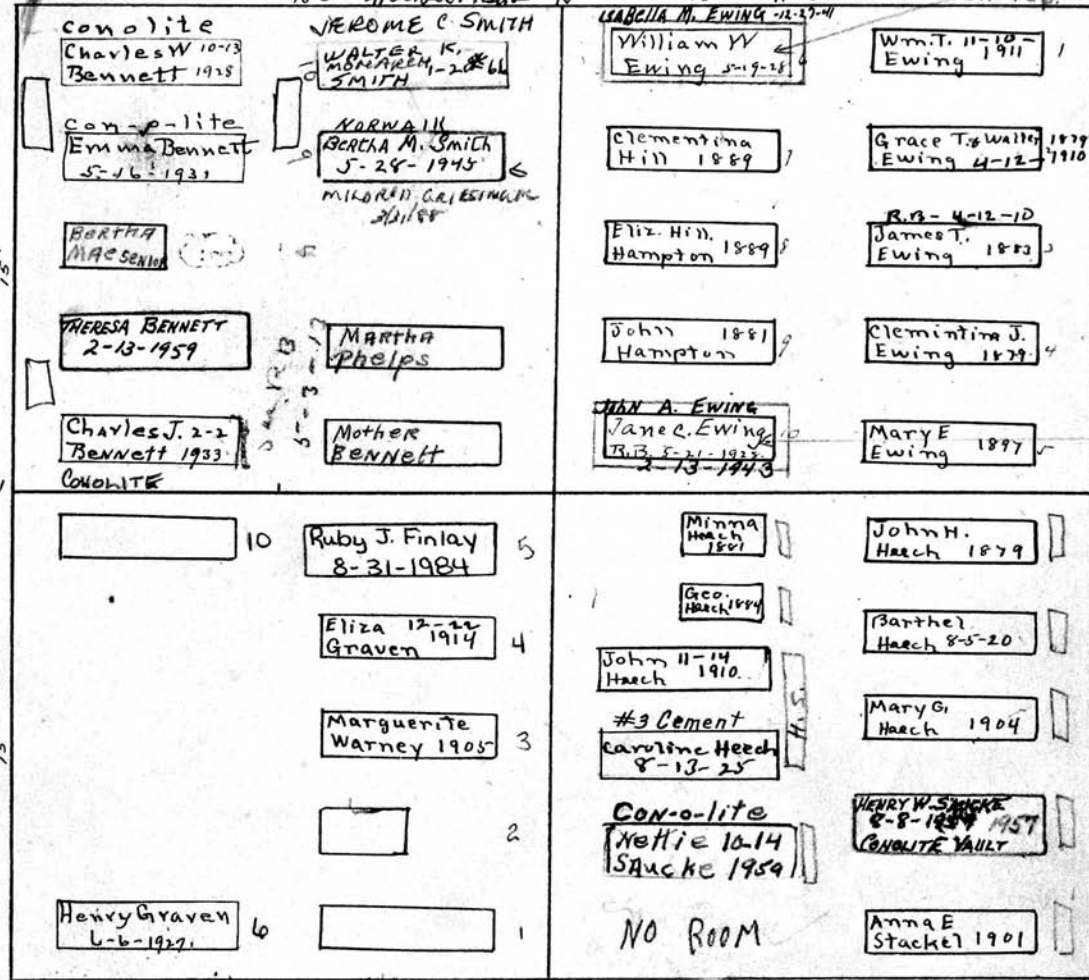 conolite
Charles W 10-13
Bennett 1928
Con-o-lite
Emma Bennett
5-16-1931
BERTHA
MAE SENIOR
THERESA BENNETT
2-13-1959
Charles J. 2-2
Bennett 1933
CONOLITE
JEROME C. SMITH
WALTER K.
MONARCH 1-28-66
SMITH
NORWALK
BERTHA M. Smith
5-28-1945
MILDRED
3/21/88
MARTHA
Phelps
Mother
BENNETT
ISABELLA M. EWING -12-27-41
William W
Ewing 5-19-28
Clementina
Hill 1889 7
Eliz. Hill
Hampton 1889 8
John 1881
Hampton 9
JOHN A. EWING
Jane C. Ewing 10
R.B. 5-21-1923
2-13-1943
Wm. T. 11-10-
Ewing 1911 1
Grace T. & Walter 1879
Ewing 4-12-1910
R.B - 4-12-10
James T.
Ewing 1883 3
Clemintina J.
Ewing 1879 4
Mary E
Ewing 1897 5
10
Ruby J. Finlay 5
8-31-1984
Eliza 12-22
Graven 1914 4
Marguerite
Warney 1905 3
2
Henry Graven
6-6-1927 6
1
Minna
Haech
1881
Geo.
Haech 1884
John 11-14
Haech 1910
H.S.
#3 Cement
Caroline Heech
8-13-25
CON-O-lite
Nettie 10-14
SAucke 1959
NO ROOM
John H.
Haech 1879
Barthel
Haech 8-5-20
Mary G.
Haech 1904
HENRY W. SAUCKE
8-8-1957
CONOLITE VAULT
Anna E
Stackel 1901
15
15